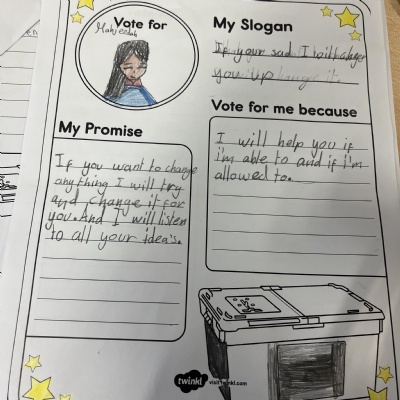 Vote for
My Slogan
If your sad I will cheer
you up
Vote for me because
I will help you if
i'm able to and if i'm
allowed to.
My Promise
If you want to change
anything I will try
and change it for
you. And I will listen
to all your idea's.
twinkl
visit twinkl.com